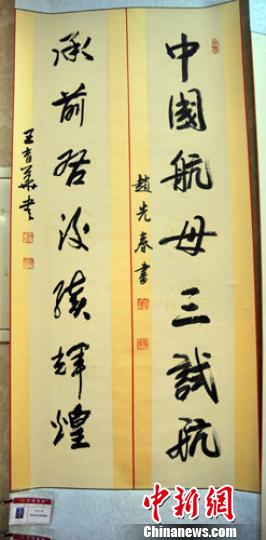 中國航母三試航
趙先春書
承前啓後續輝煌
中新網
www.chinanews.com